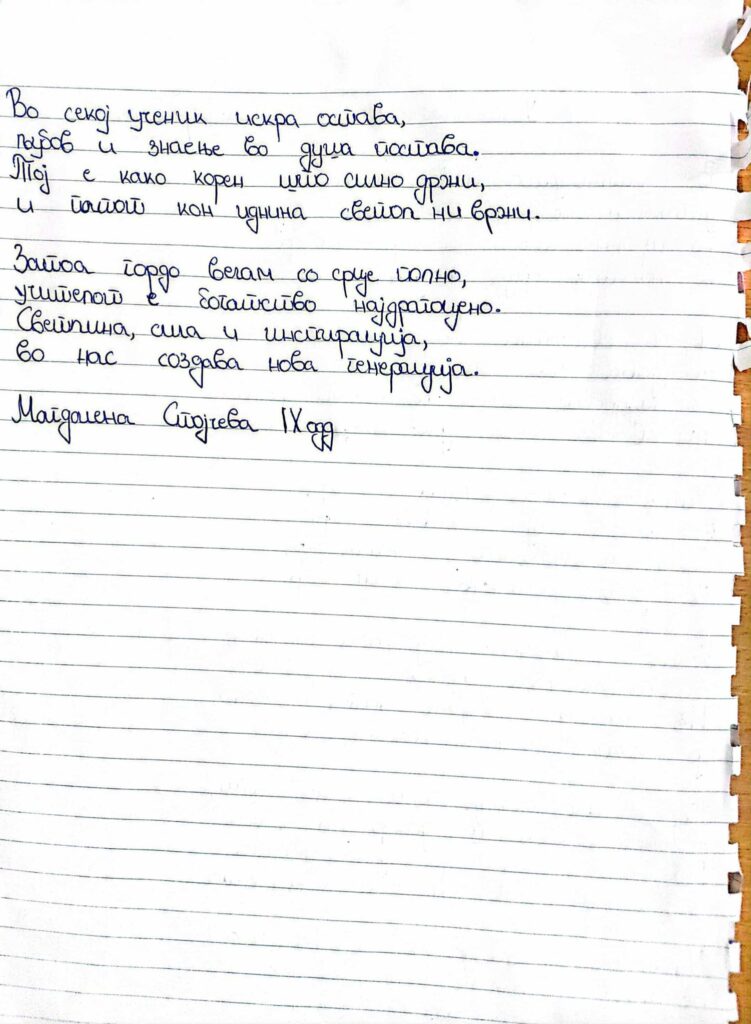 Во секој ученик искра остава,
љубов и знаење во душа постава.
Тој е како корен што силно држи,
и патот кон иднина светол ни врżи.
Затоа гордо велам со срце полно,
учителот е богатство најдрагоцено.
Светлина, сила и инспирација,
во нас создава нова генерација.
Магдалена Стојчева IX одд